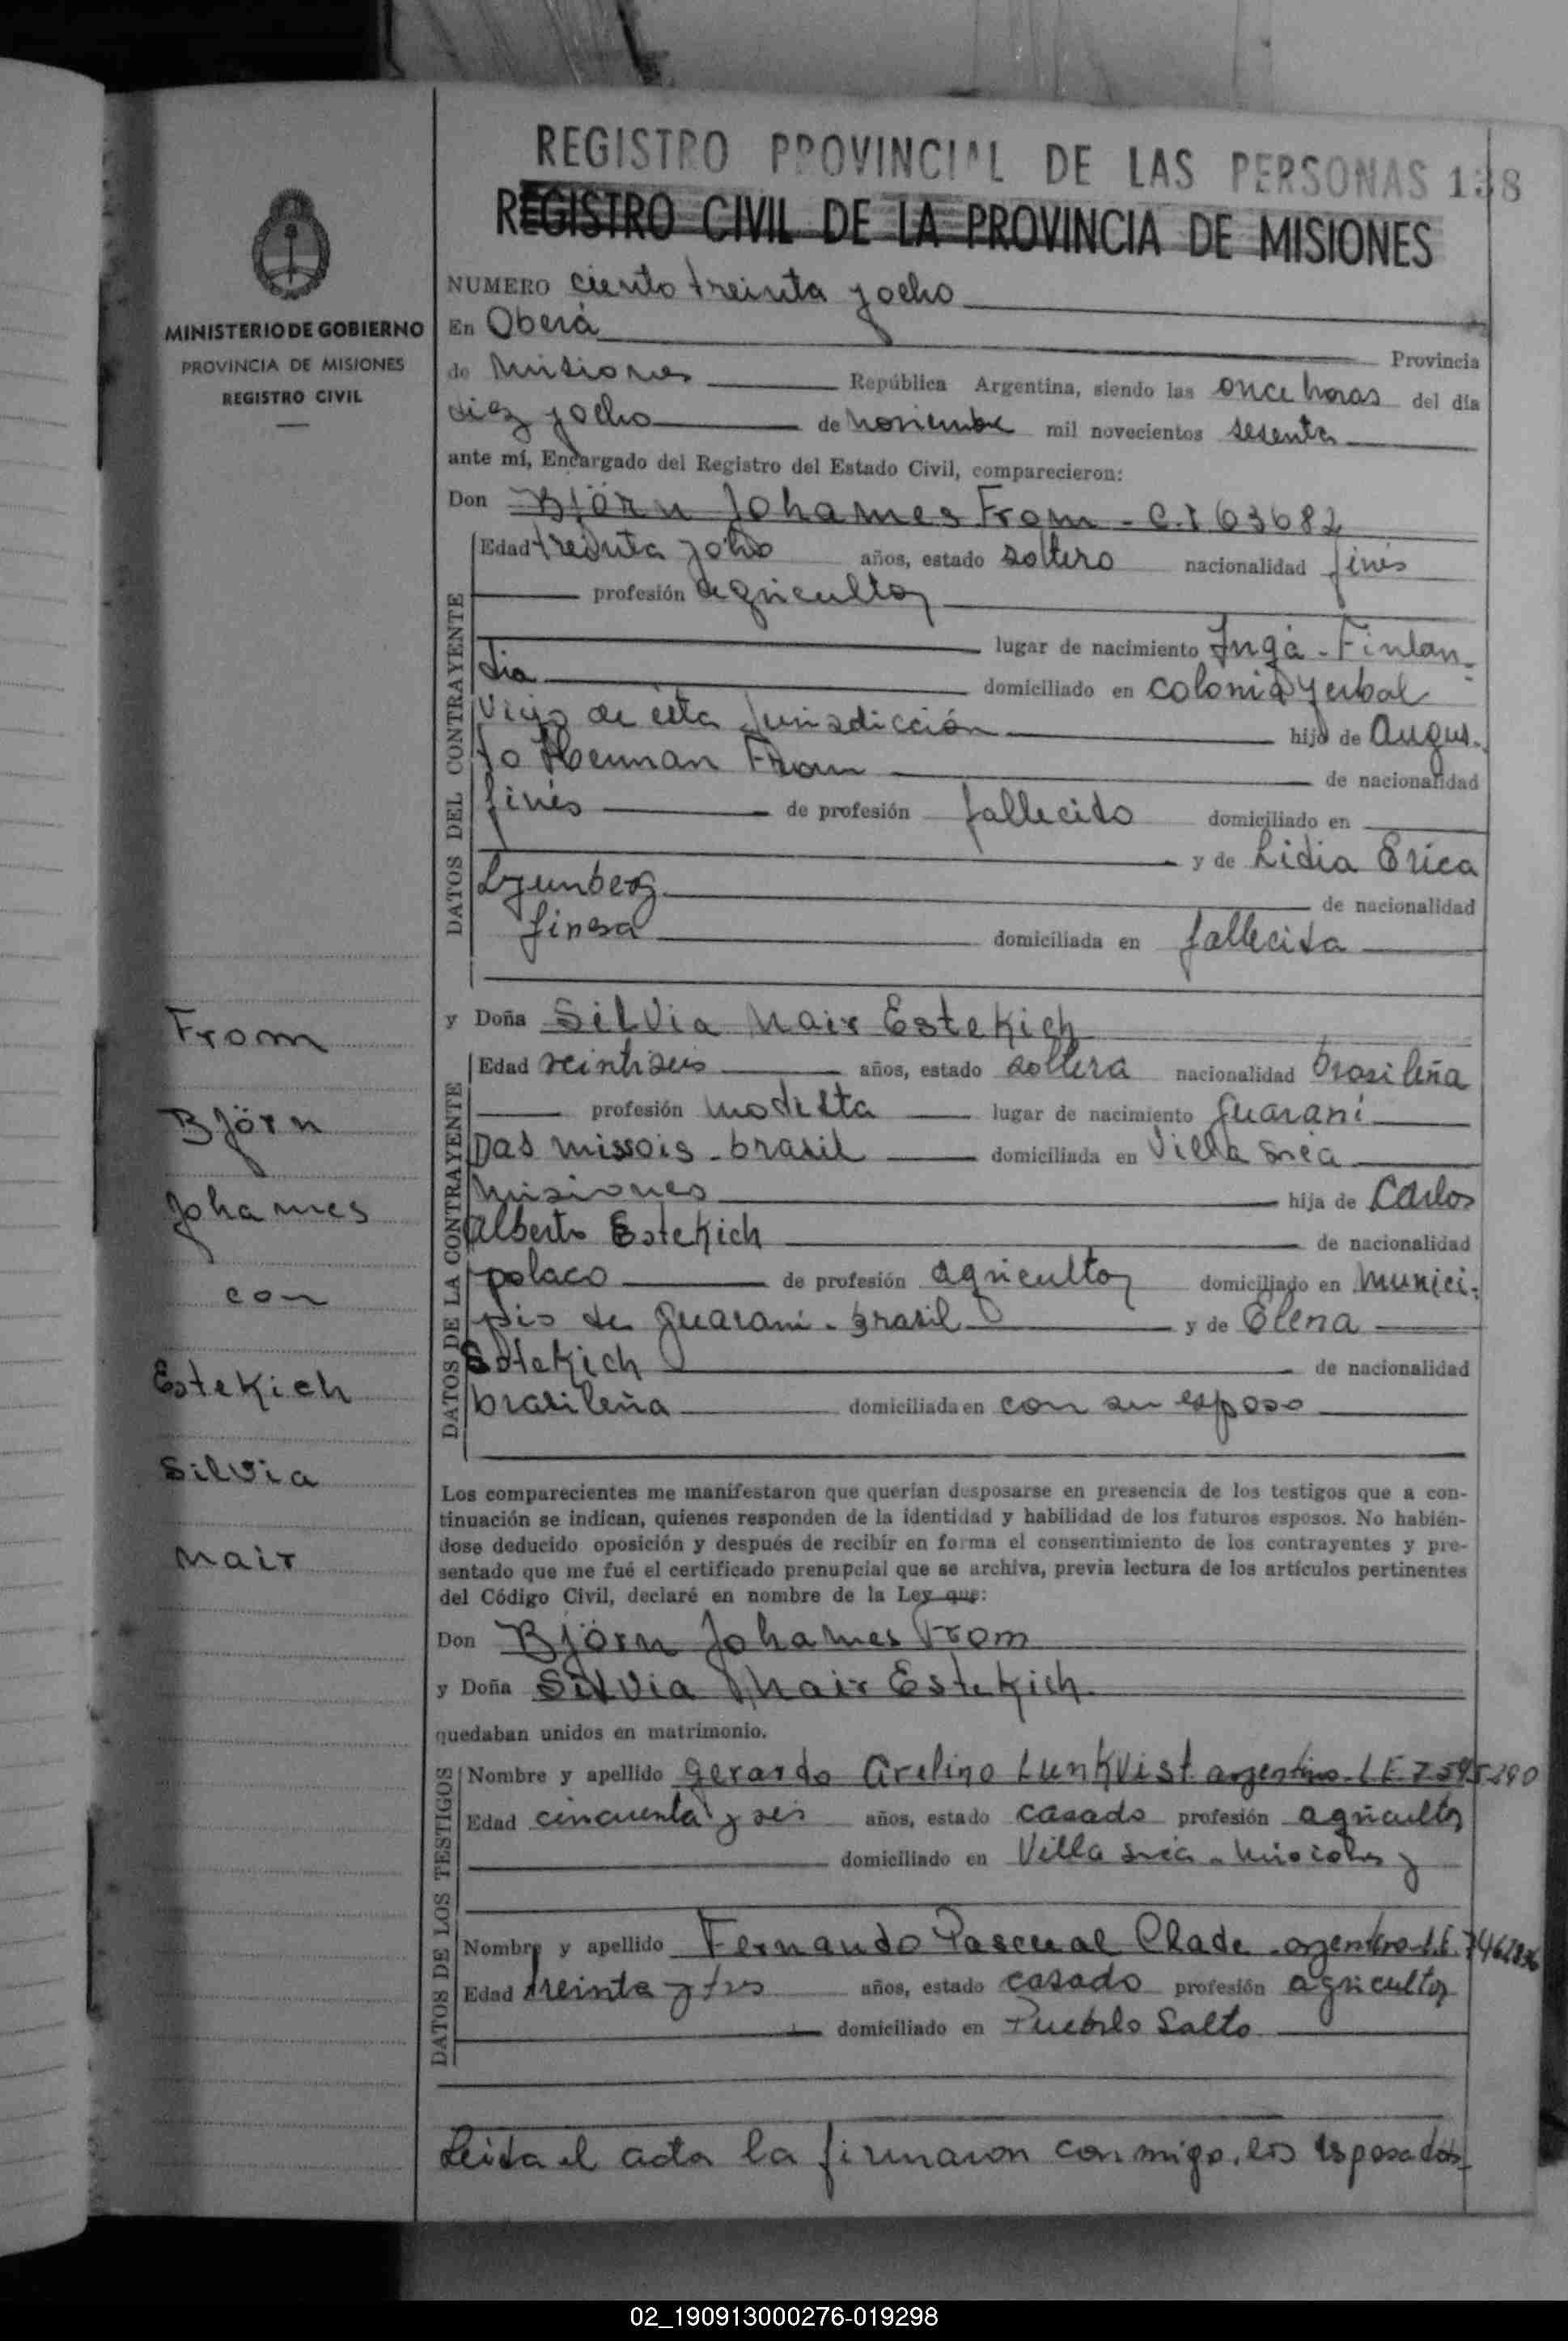 REGISTRO PROVINCIAL DE LAS PERSONAS 138
REGISTRO CIVIL DE LA PROVINCIA DE MISIONES
MINISTERIO DE GOBIERNO
PROVINCIA DE MISIONES
REGISTRO CIVIL
NUMERO ciento treinta y ocho
En Oberá Provincia
de Misiones República Argentina, siendo las once horas del día
diez y ocho de noviembre mil novecientos sesenta
ante mí, Encargado del Registro del Estado Civil, comparecieron:
Don Björn Johannes From - C.I 63682
DATOS DEL CONTRAYENTE
Edad treinta y ocho años, estado soltero nacionalidad finés
profesión agricultor
lugar de nacimiento Ingá - Finlan-
dia domiciliado en colonia yerbal
Viejo de ésta Jurisdicción hijo de Augus-
to Herman From de nacionalidad
finés de profesión fallecido domiciliado en
y de Lidia Erica
Lyunberg de nacionalidad
finesa domiciliada en fallecida
y Doña Silvia Nair Estekich
DATOS DE LA CONTRAYENTE
Edad veintiseis años, estado soltera nacionalidad brasileña
profesión modista lugar de nacimiento Guaraní
Das missois - brasil domiciliada en Villa svea
Misiones hija de Carlos
Alberto Estekich de nacionalidad
polaco de profesión agricultor domiciliado en Munici-
pio de Guaraní - Brasil y de Elena
Estekich de nacionalidad
brasileña domiciliada en con su esposo
From
Björn
Johannes
con
Estekich
Silvia
Nair
Los comparecientes me manifestaron que querían desposarse en presencia de los testigos que a con-
tinuación se indican, quienes responden de la identidad y habilidad de los futuros esposos. No habién-
dose deducido oposición y después de recibir en forma el consentimiento de los contrayentes y pre-
sentado que me fué el certificado prenupcial que se archiva, previa lectura de los artículos pertinentes
del Código Civil, declaré en nombre de la Ley que:
Don Björn Johannes From
y Doña Silvia Nair Estekich
quedaban unidos en matrimonio.
DATOS DE LOS TESTIGOS
Nombre y apellido Gerardo Avelino Lunkvist argentino - L E 7595290
Edad cincuenta y seis años, estado casado profesión agricultor
domiciliado en Villa svea - Misiones y
Nombre y apellido Fernando Pascual Clade - argentino - L.E.
Edad treinta y tres años, estado casado profesión agricultor
domiciliado en Pueblo Salto
Leida el acta la firmaron conmigo, los esposados
02_190913000276-019298